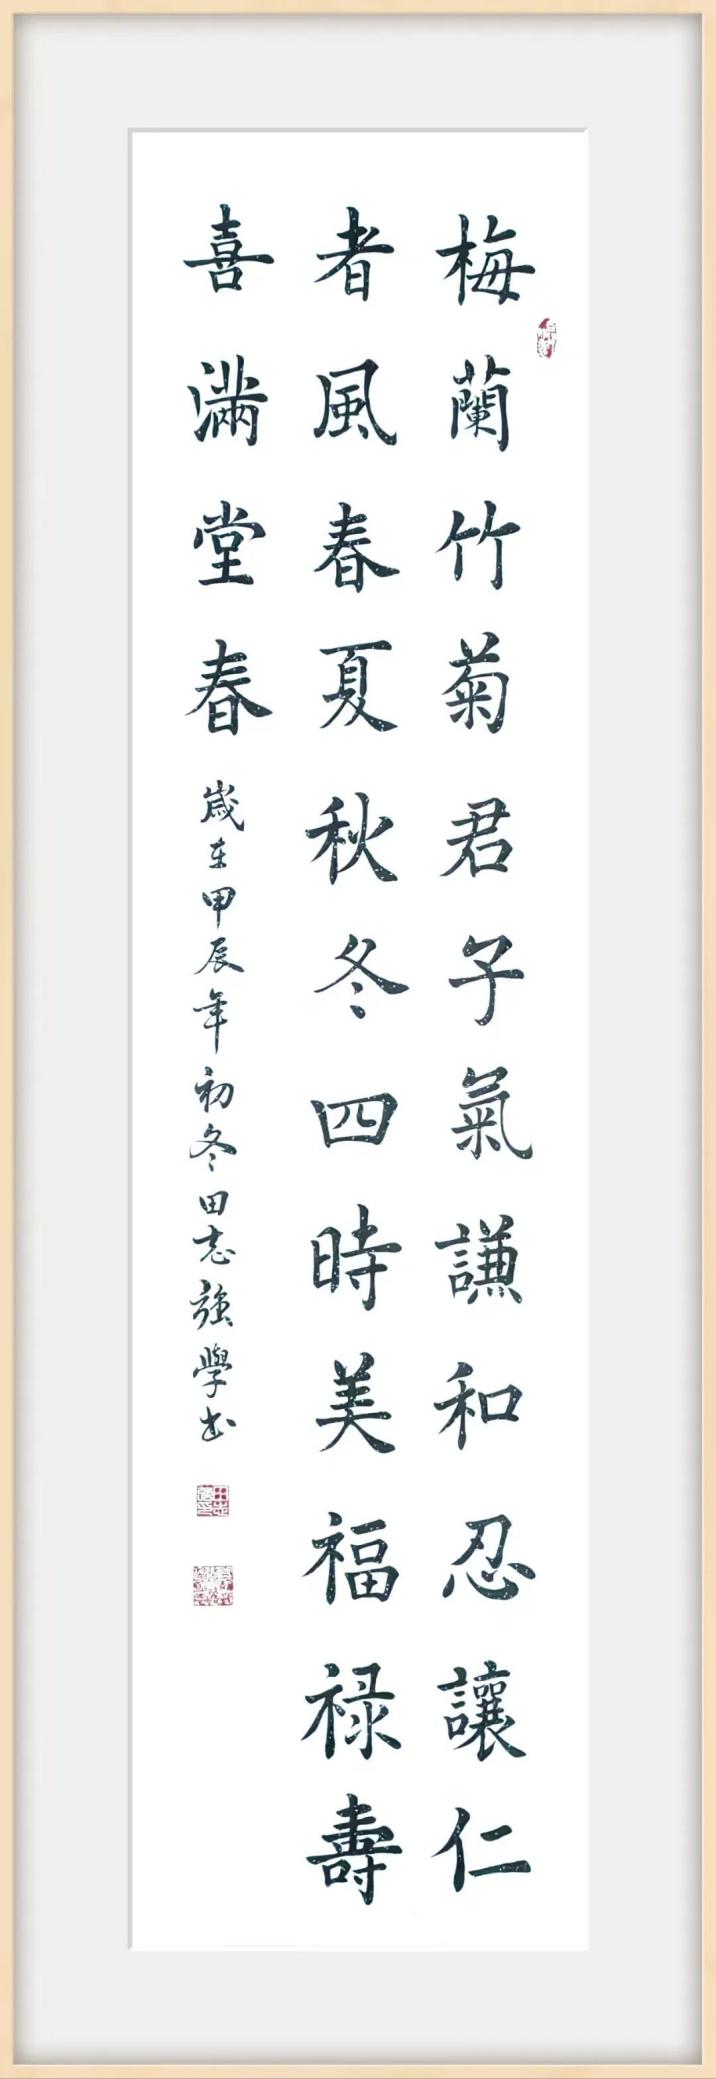 梅蘭竹菊君子氣謙和忍讓仁
者風春夏秋冬四時美福禄壽
喜滿堂春
歲在甲辰年初冬田志強學書